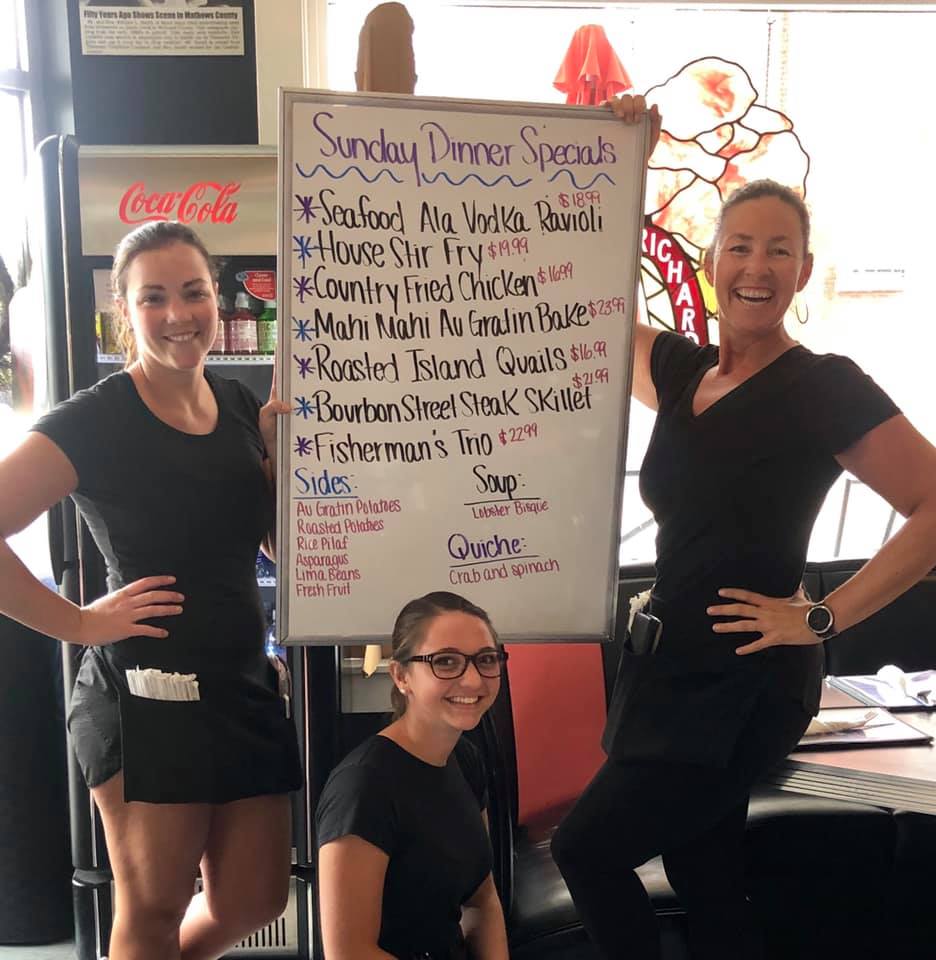 Fifty Years Ago Shows Scene in Mathews County
Coca-Cola
RICHAR
Sunday Dinner Specials
*Seafood Ala Vodka Ravioli $18.99
*House Stir Fry $19.99
*Country Fried Chicken $16.99
*Mahi Mahi Au Gratin Bake $23.99
*Roasted Island Quails $16.99
*Bourbon Street Steak Skillet $21.99
*Fisherman's Trio $22.99
Sides:
Au Gratin Potatoes
Roasted Potatoes
Rice Pilaf
Asparagus
Lima Beans
Fresh Fruit
Soup:
Lobster Bisque
Quiche:
Crab and spinach